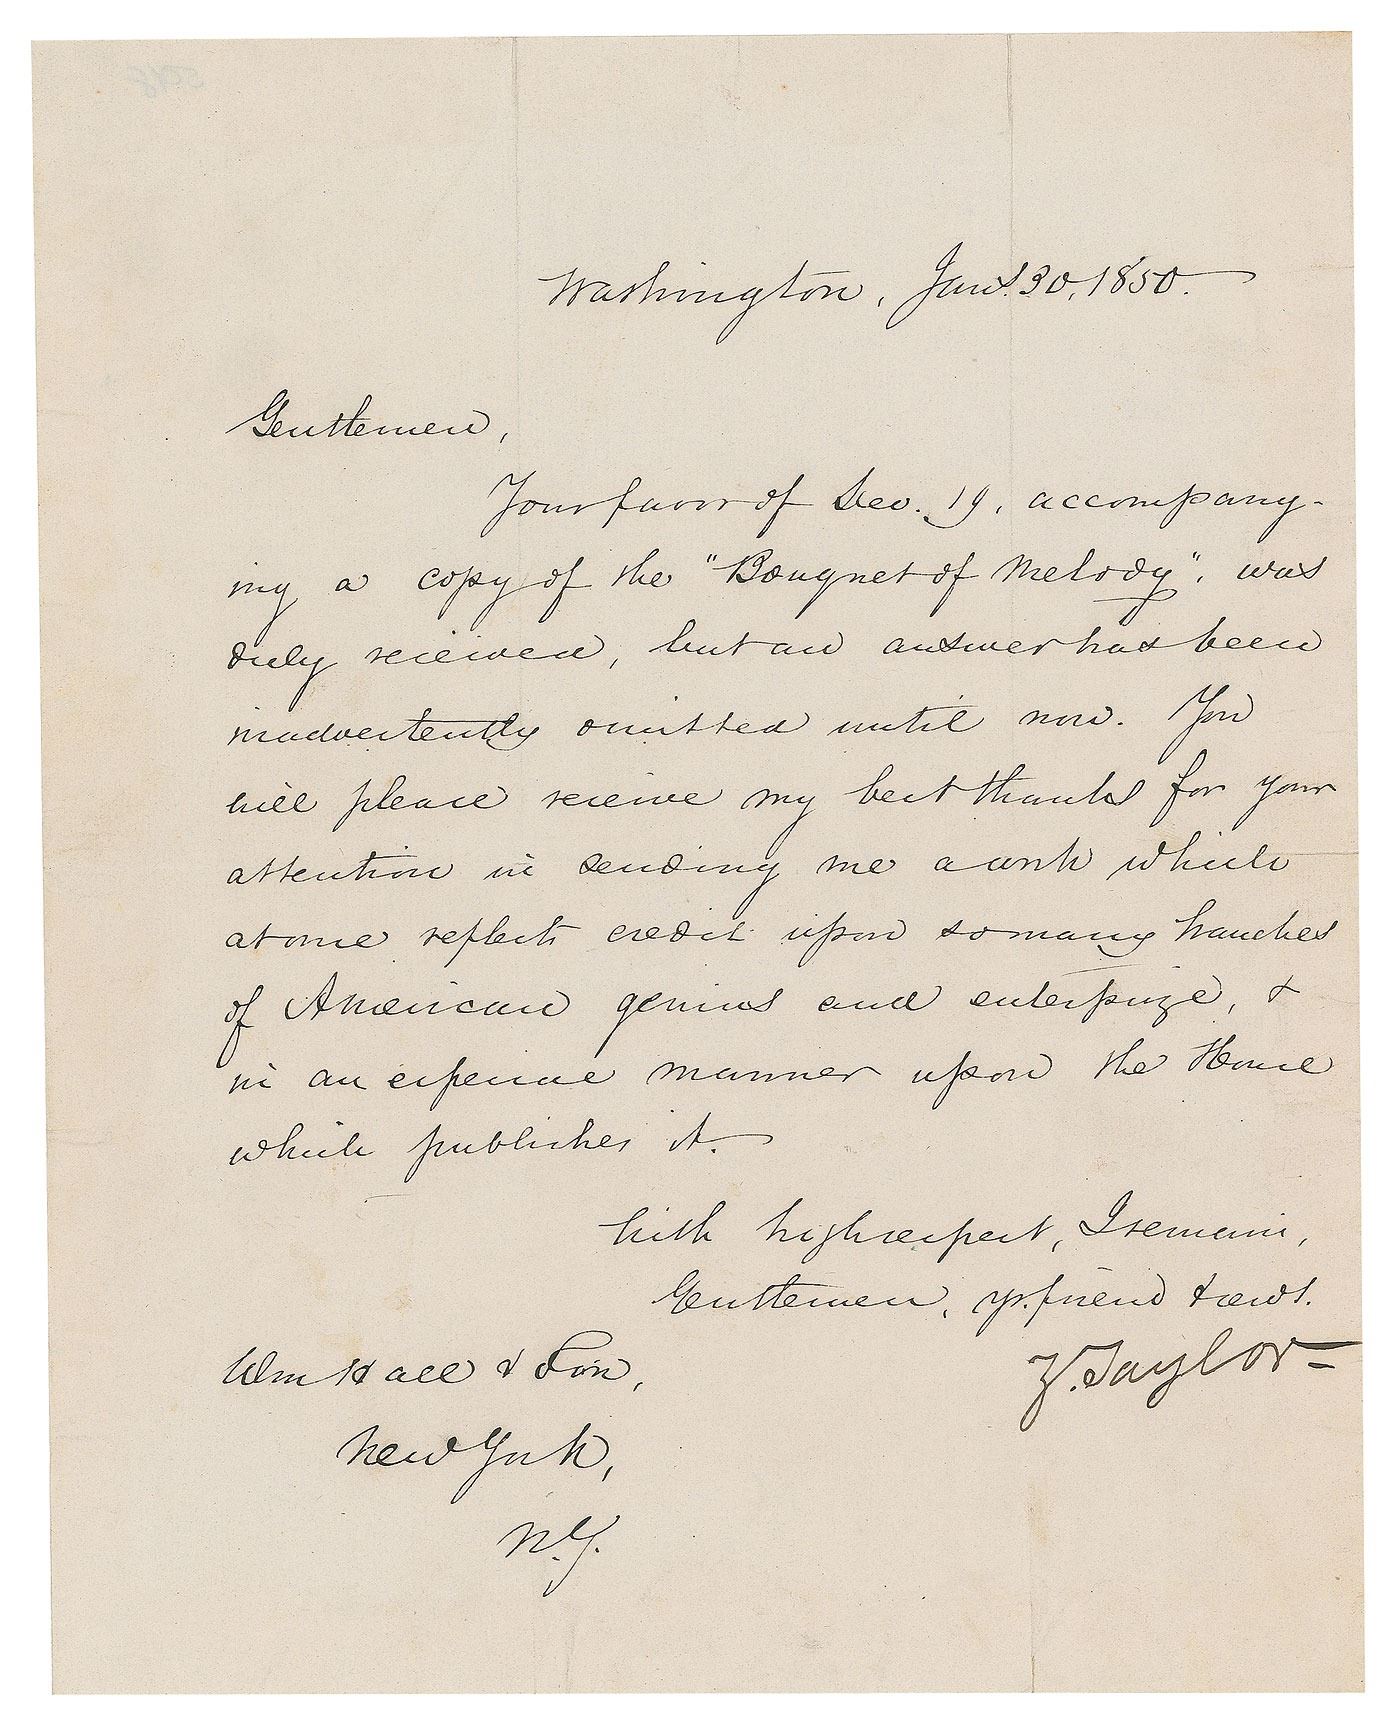 Washington, Jany. 30, 1850.
Gentlemen,
Your favor of Dec. 19, accompany-
ing a copy of the "Bouquet of Melody", was
duly received, but an answer has been
inadvertently omitted until now. You
will please receive my best thanks for your
attention in sending me a work which
at once reflects credit upon so many branches
of American genius and enterprize, &
in an especial manner upon the House
which publishes it.
With high respect, I remain,
Gentlemen, yr. friend & servt.
Z. Taylor
Wm Hall & Son,
New York,
N.Y.